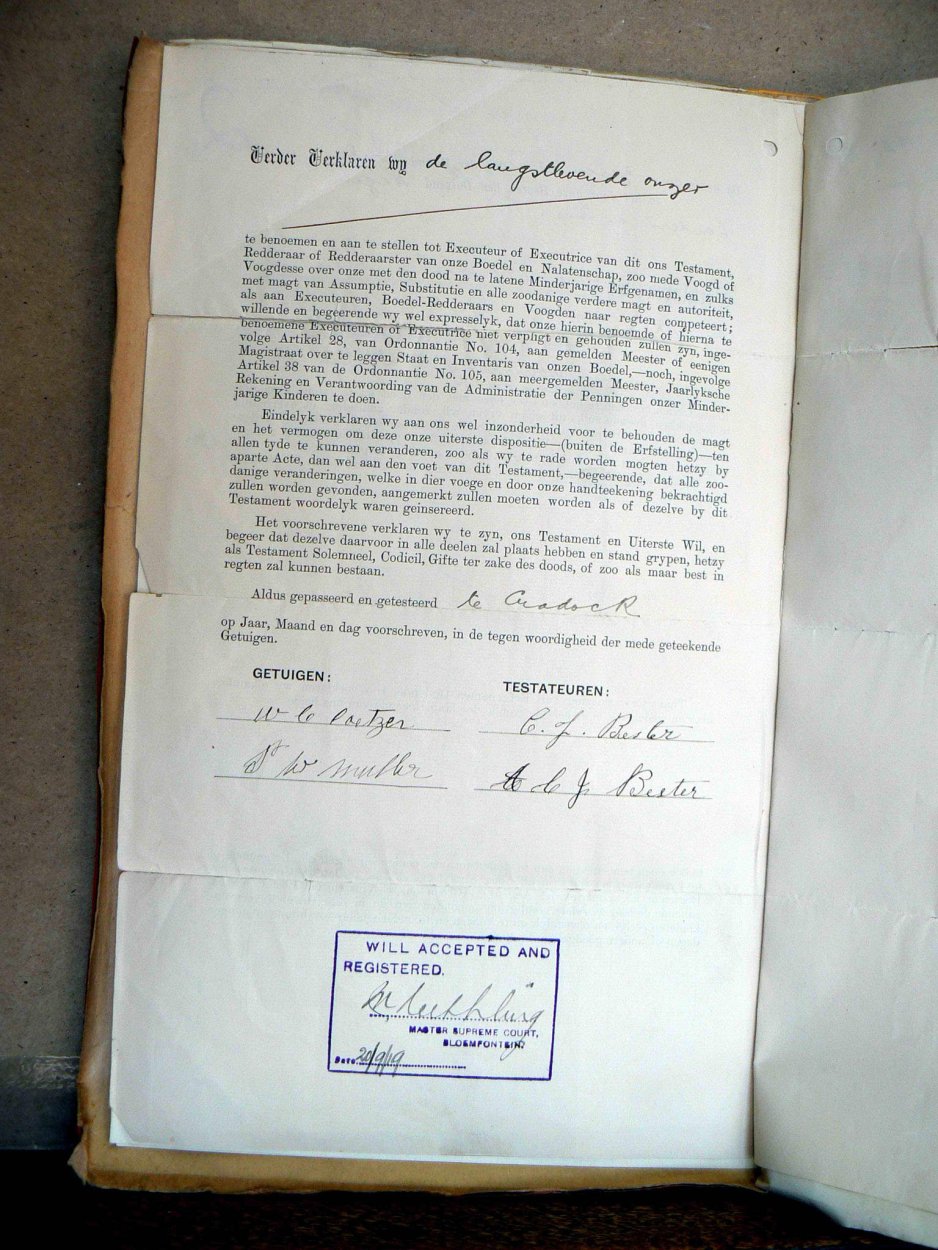 Verder Verklaren wy de langstlevende onzer
te benoemen en aan te stellen tot Executeur of Executrice van dit ons Testament,
Redderaar of Redderaarster van onze Boedel en Nalatenschap, zoo mede Voogd of
Voogdesse over onze met den dood na te latene Minderjarige Erfgenamen, en zulks
met magt van Assumptie, Substitutie en alle zoodanige verdere magt en autoriteit,
als aan Executeuren, Boedel-Redderaars en Voogden naar regten competeert;
willende en begeerende wy wel expresselyk, dat onze hierin benoemde of hierna te
benoemene Executeuren of Executrice niet verpligt en gehouden zullen zyn, inge-
volge Artikel 28, van Ordonnantie No. 104, aan gemelden Meester of eenigen
Magistraat over te leggen Staat en Inventaris van onzen Boedel,—noch, ingevolge
Artikel 38 van de Ordonnantie No. 105, aan meergemelden Meester, Jaarlyksche
Rekening en Verantwoording van de Administratie der Penningen onzer Minder-
jarige Kinderen te doen.
Eindelyk verklaren wy aan ons wel inzonderheid voor te behouden de magt
en het vermogen om deze onze uiterste dispositie—(buiten de Erfstelling)—ten
allen tyde te kunnen veranderen, zoo als wy te rade worden mogten hetzy by
aparte Acte, dan wel aan den voet van dit Testament,—begeerende, dat alle zoo-
danige veranderingen, welke in dier voege en door onze handteekening bekrachtigd
zullen worden gevonden, aangemerkt zullen moeten worden als of dezelve by dit
Testament woordelyk waren geinsereerd.
Het voorschrevene verklaren wy te zyn, ons Testament en Uiterste Wil, en
begeer dat dezelve daarvoor in alle deelen zal plaats hebben en stand grypen, hetzy
als Testament Solemneel, Codicil, Gifte ter zake des doods, of zoo als maar best in
regten zal kunnen bestaan.
Aldus gepasseerd en getesteerd te Cradock
op Jaar, Maand en dag voorschreven, in de tegen woordigheid der mede geteekende
Getuigen.
GETUIGEN:
W C Coetzer
W Muller
TESTATEUREN:
C. J. Bester
A C J Bester
WILL ACCEPTED AND
REGISTERED.
MASTER SUPREME COURT,
BLOEMFONTEIN.
Date 20/9/19